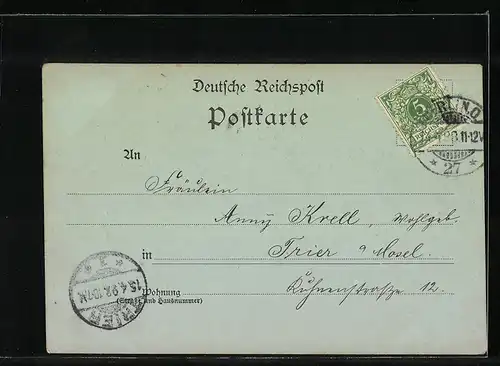 Deutsche Reichspost
Postkarte
5
RLIN
11-12V
* 27 *
An
Fräulein
Anny Krell, Wohlgeb.
in
Trier a Mosel.
Wohnung
(Straße und Hausnummer)
12.
* 1 *
15.4.98.
TRIER